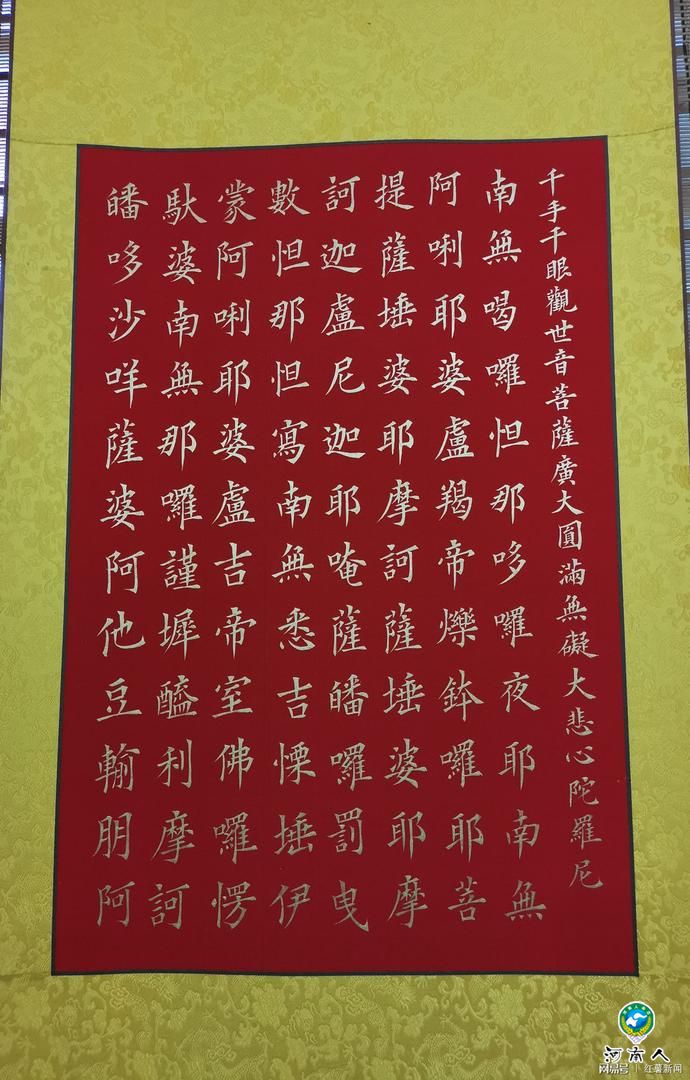 千手千眼觀世音菩薩廣大圓滿無礙大悲心陀羅尼
南無喝囉怛那哆囉夜耶南無
阿唎耶婆盧羯帝爍鉢囉耶菩
提薩埵婆耶摩訶薩埵婆耶摩
訶迦盧尼迦耶唵薩皤囉罰曳
數怛那怛寫南無悉吉慄埵伊
蒙阿唎耶婆盧吉帝室佛囉愣
馱婆南無那囉謹墀醯利摩訶
皤哆沙咩薩婆阿他豆輸朋阿
河南人
网易号 | 红薯新闻